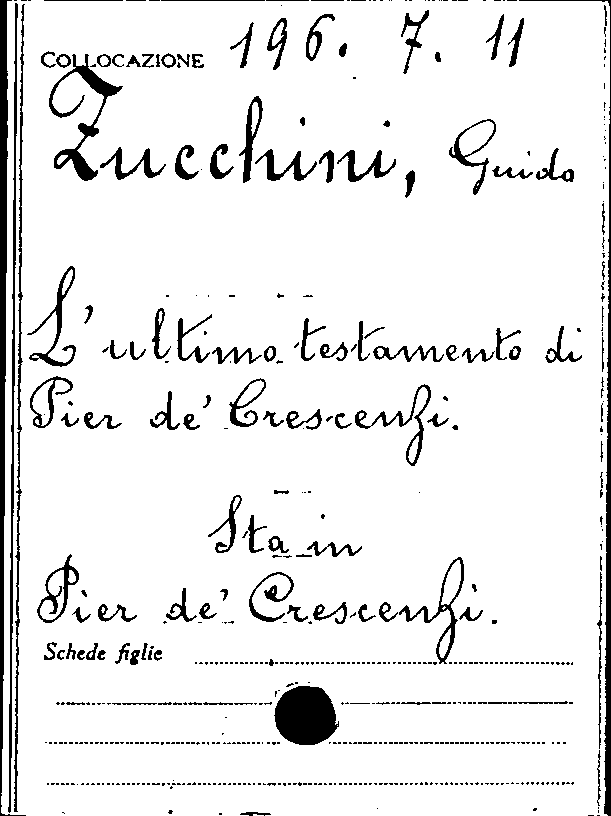 COLLOCAZIONE 196. 7. 11
Zucchini, Guido
L'ultimo testamento di
Pier de' Crescenzi.
Sta in
Pier de' Crescenzi.
Schede figlie